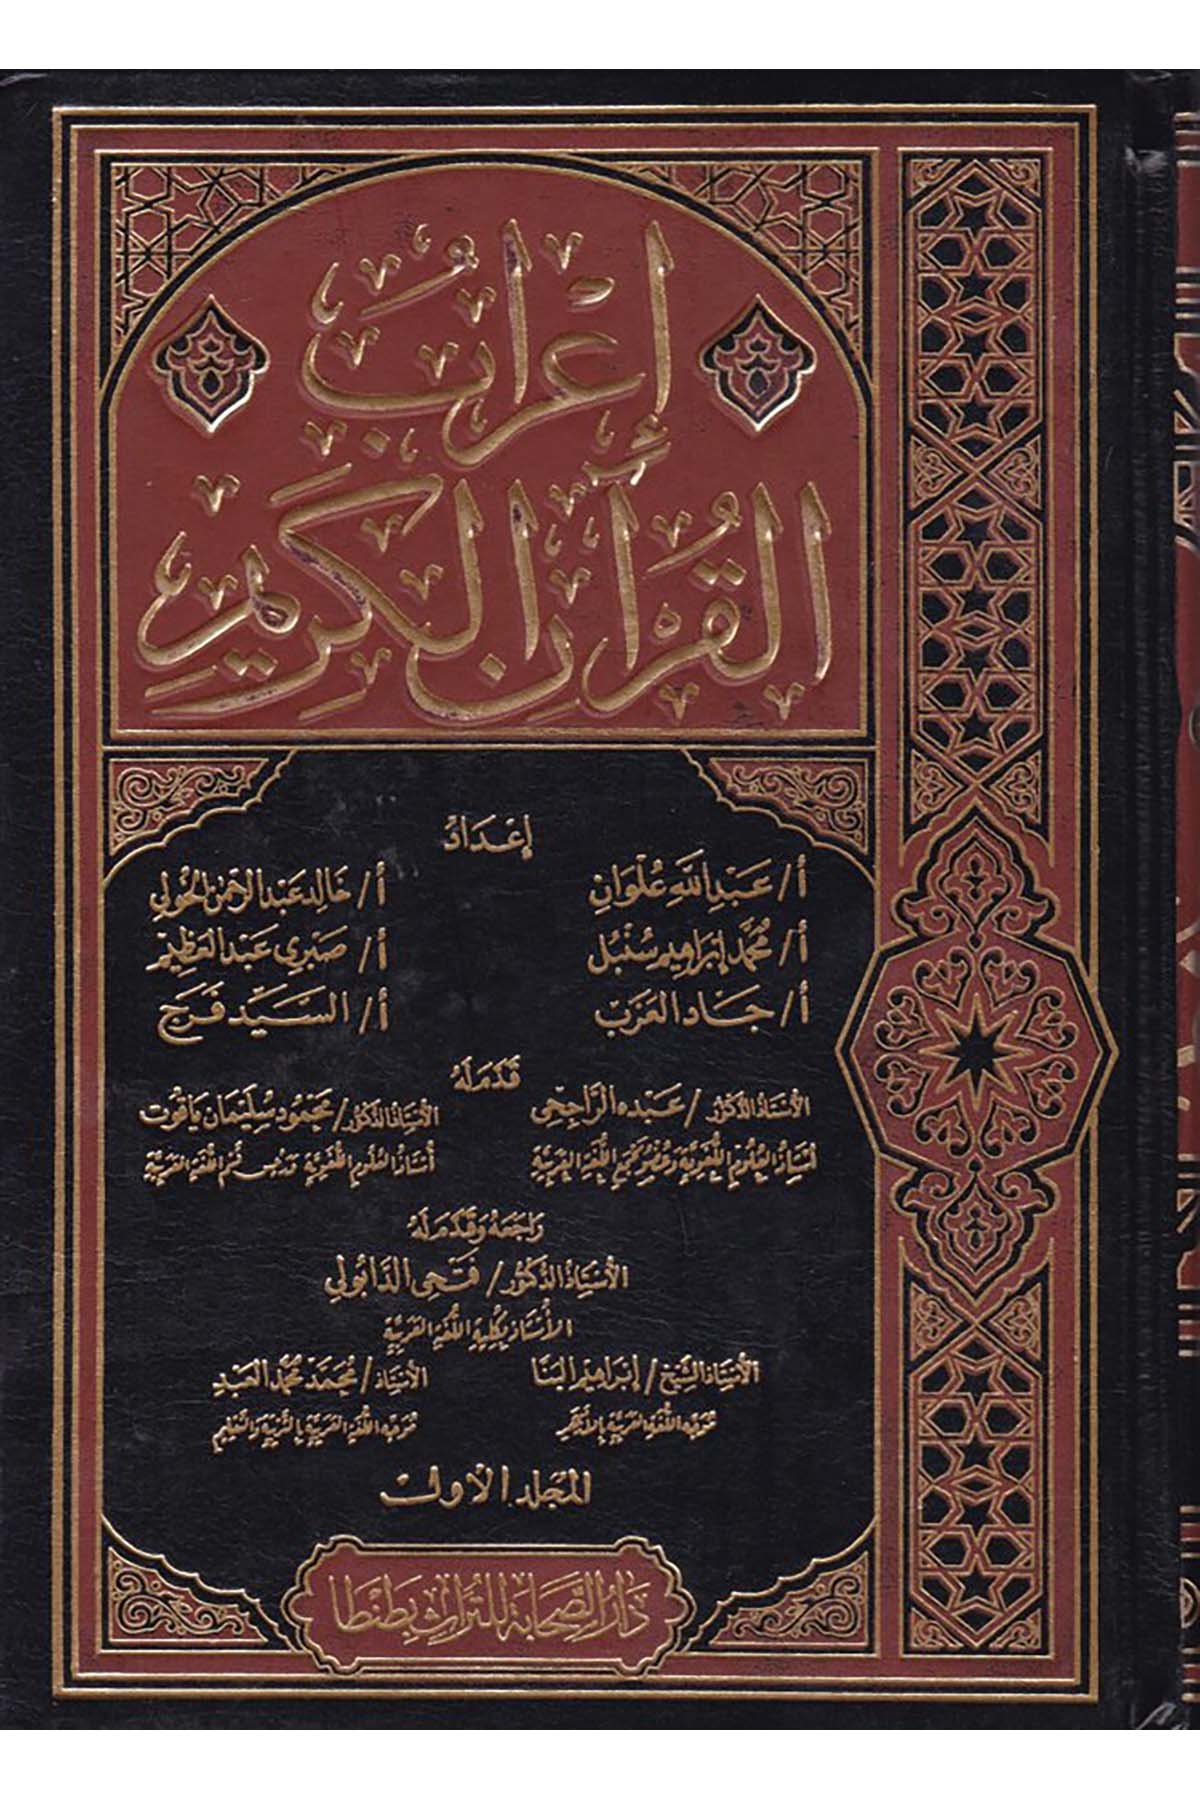 إِعْرَابُ
القُرْآنِ الكَرِيمِ
إعداد
أ/ عبد الله علوان
أ/ خالد عبد الرحمن الخولي
أ/ محمد إبراهيم سنبل
أ/ صبري عبد العظيم
أ/ جاد العزب
أ/ السيد فرج
قدم له
الأستاذ الدكتور/ عبده الراجحي
الأستاذ الدكتور/ محمود سليمان ياقوت
أستاذ العلوم اللغوية وعضو مجمع اللغة العربية
أستاذ العلوم اللغوية ورئيس قسم اللغة العربية
راجعه وقدم له
الأستاذ الدكتور/ فتحي الدابولي
الأستاذ بكلية اللغة العربية
الأستاذ الشيخ/ إبراهيم البنا
الأستاذ/ محمد محمد العبد
موجه اللغة العربية بالأزهر
موجه اللغة العربية بالتربية والتعليم
المجلد الأول
دار الصحابة للتراث بطنطا